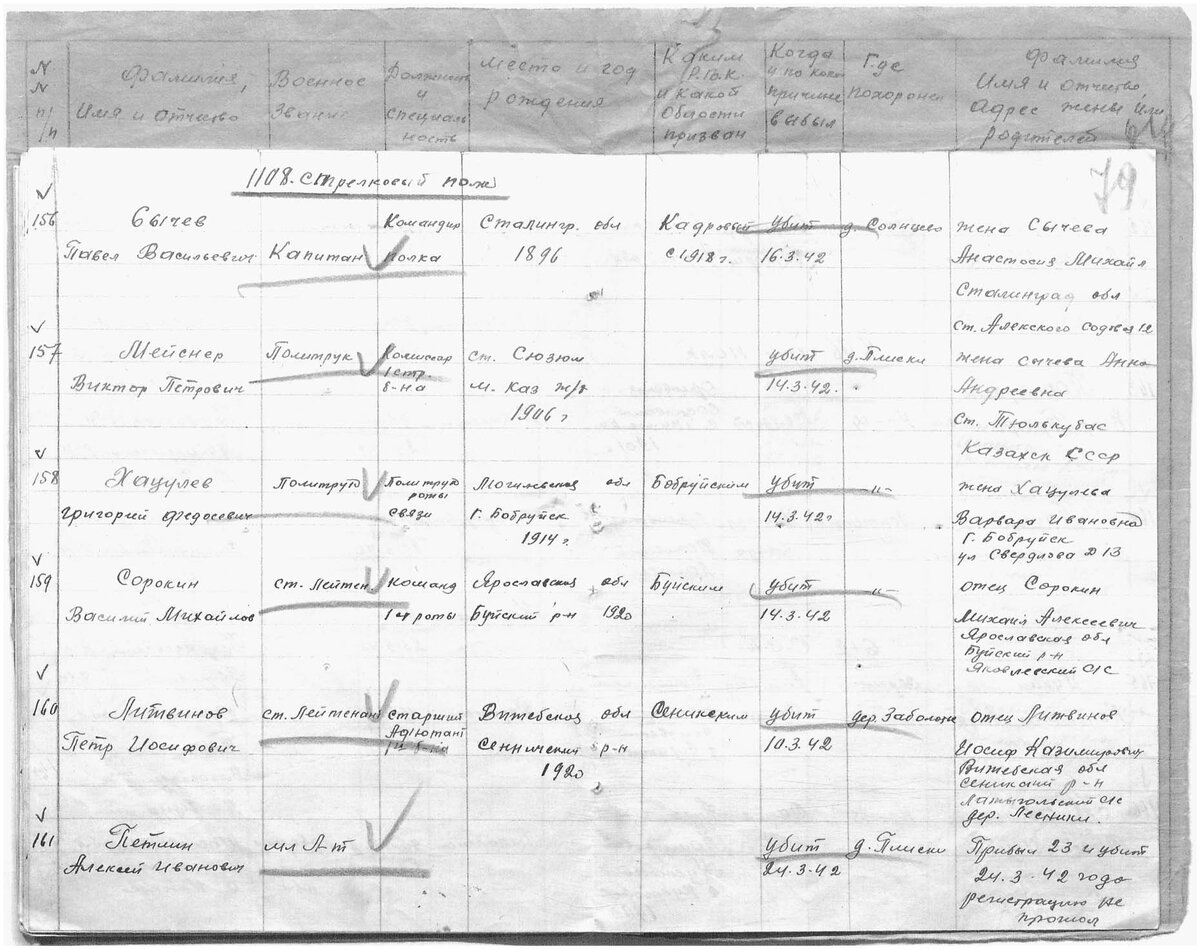 N N п/п
Фамилия, Имя и отчество
Военное Звание
Должность и специальность
Место и год рождения
Каким Р.В.К. и какой области призван
Когда и по какой причине выбыл
Где похоронен
Фамилия Имя и отчество, Адрес жены или родителей
79
1108. Стрелковый полк
156 Сычев Командир Сталингр. обл Кадровый убит д. Солнцево жена Сычева
Павел Васильевич Капитан полка 1896 с 1918 г. 16.3.42 Анастосия Михайл
Сталинград обл
ст. Алекского Содовая 12
157 Мейснер Политрук Комиссар ст. Сюзюм убит д. Плиски жена Сычева Анна
1 стр.
Виктор Петрович б-на м. каз ж/д 14.3.42. Андреевна
1906 г ст. Тюлькубас
Казахск ССР
158 Хацулев Политрук Политрук Могилевская обл Бобруйским убит -"- жена Хацулева
роты
Григорий Федосевич связи г. Бобруйск 14.3.42г Варвара Ивановна
1914 г. г. Бобруйск
ул Свердлова Д 13
159 Сорокин ст. Лейтен. команд Ярославская обл Буйским убит -"- отец Сорокин
Василий Михайлов 1й роты Буйский р-н 1920 14.3.42 Михаил Алексеевич
Ярославская обл
Буйский р-н
Яковлевский с/с
160 Литвинов ст. Лейтенант старший Витебская обл Сеникским убит дер. Заболоте отец Литвинов
Адютант
Петр Иосифович 1й б-на Сенниский р-н 10.3.42 Иосиф Казимирович
1920 Витебская обл
Сеникаий р-н
Латыгольский с/с
дер. Лесники.
161 Петлин мл Л-т убит д. Плиски Прибыл 23 и убит
Алексей Иванович 24.3.42 24.3.42 года
регистрацию не
прошол